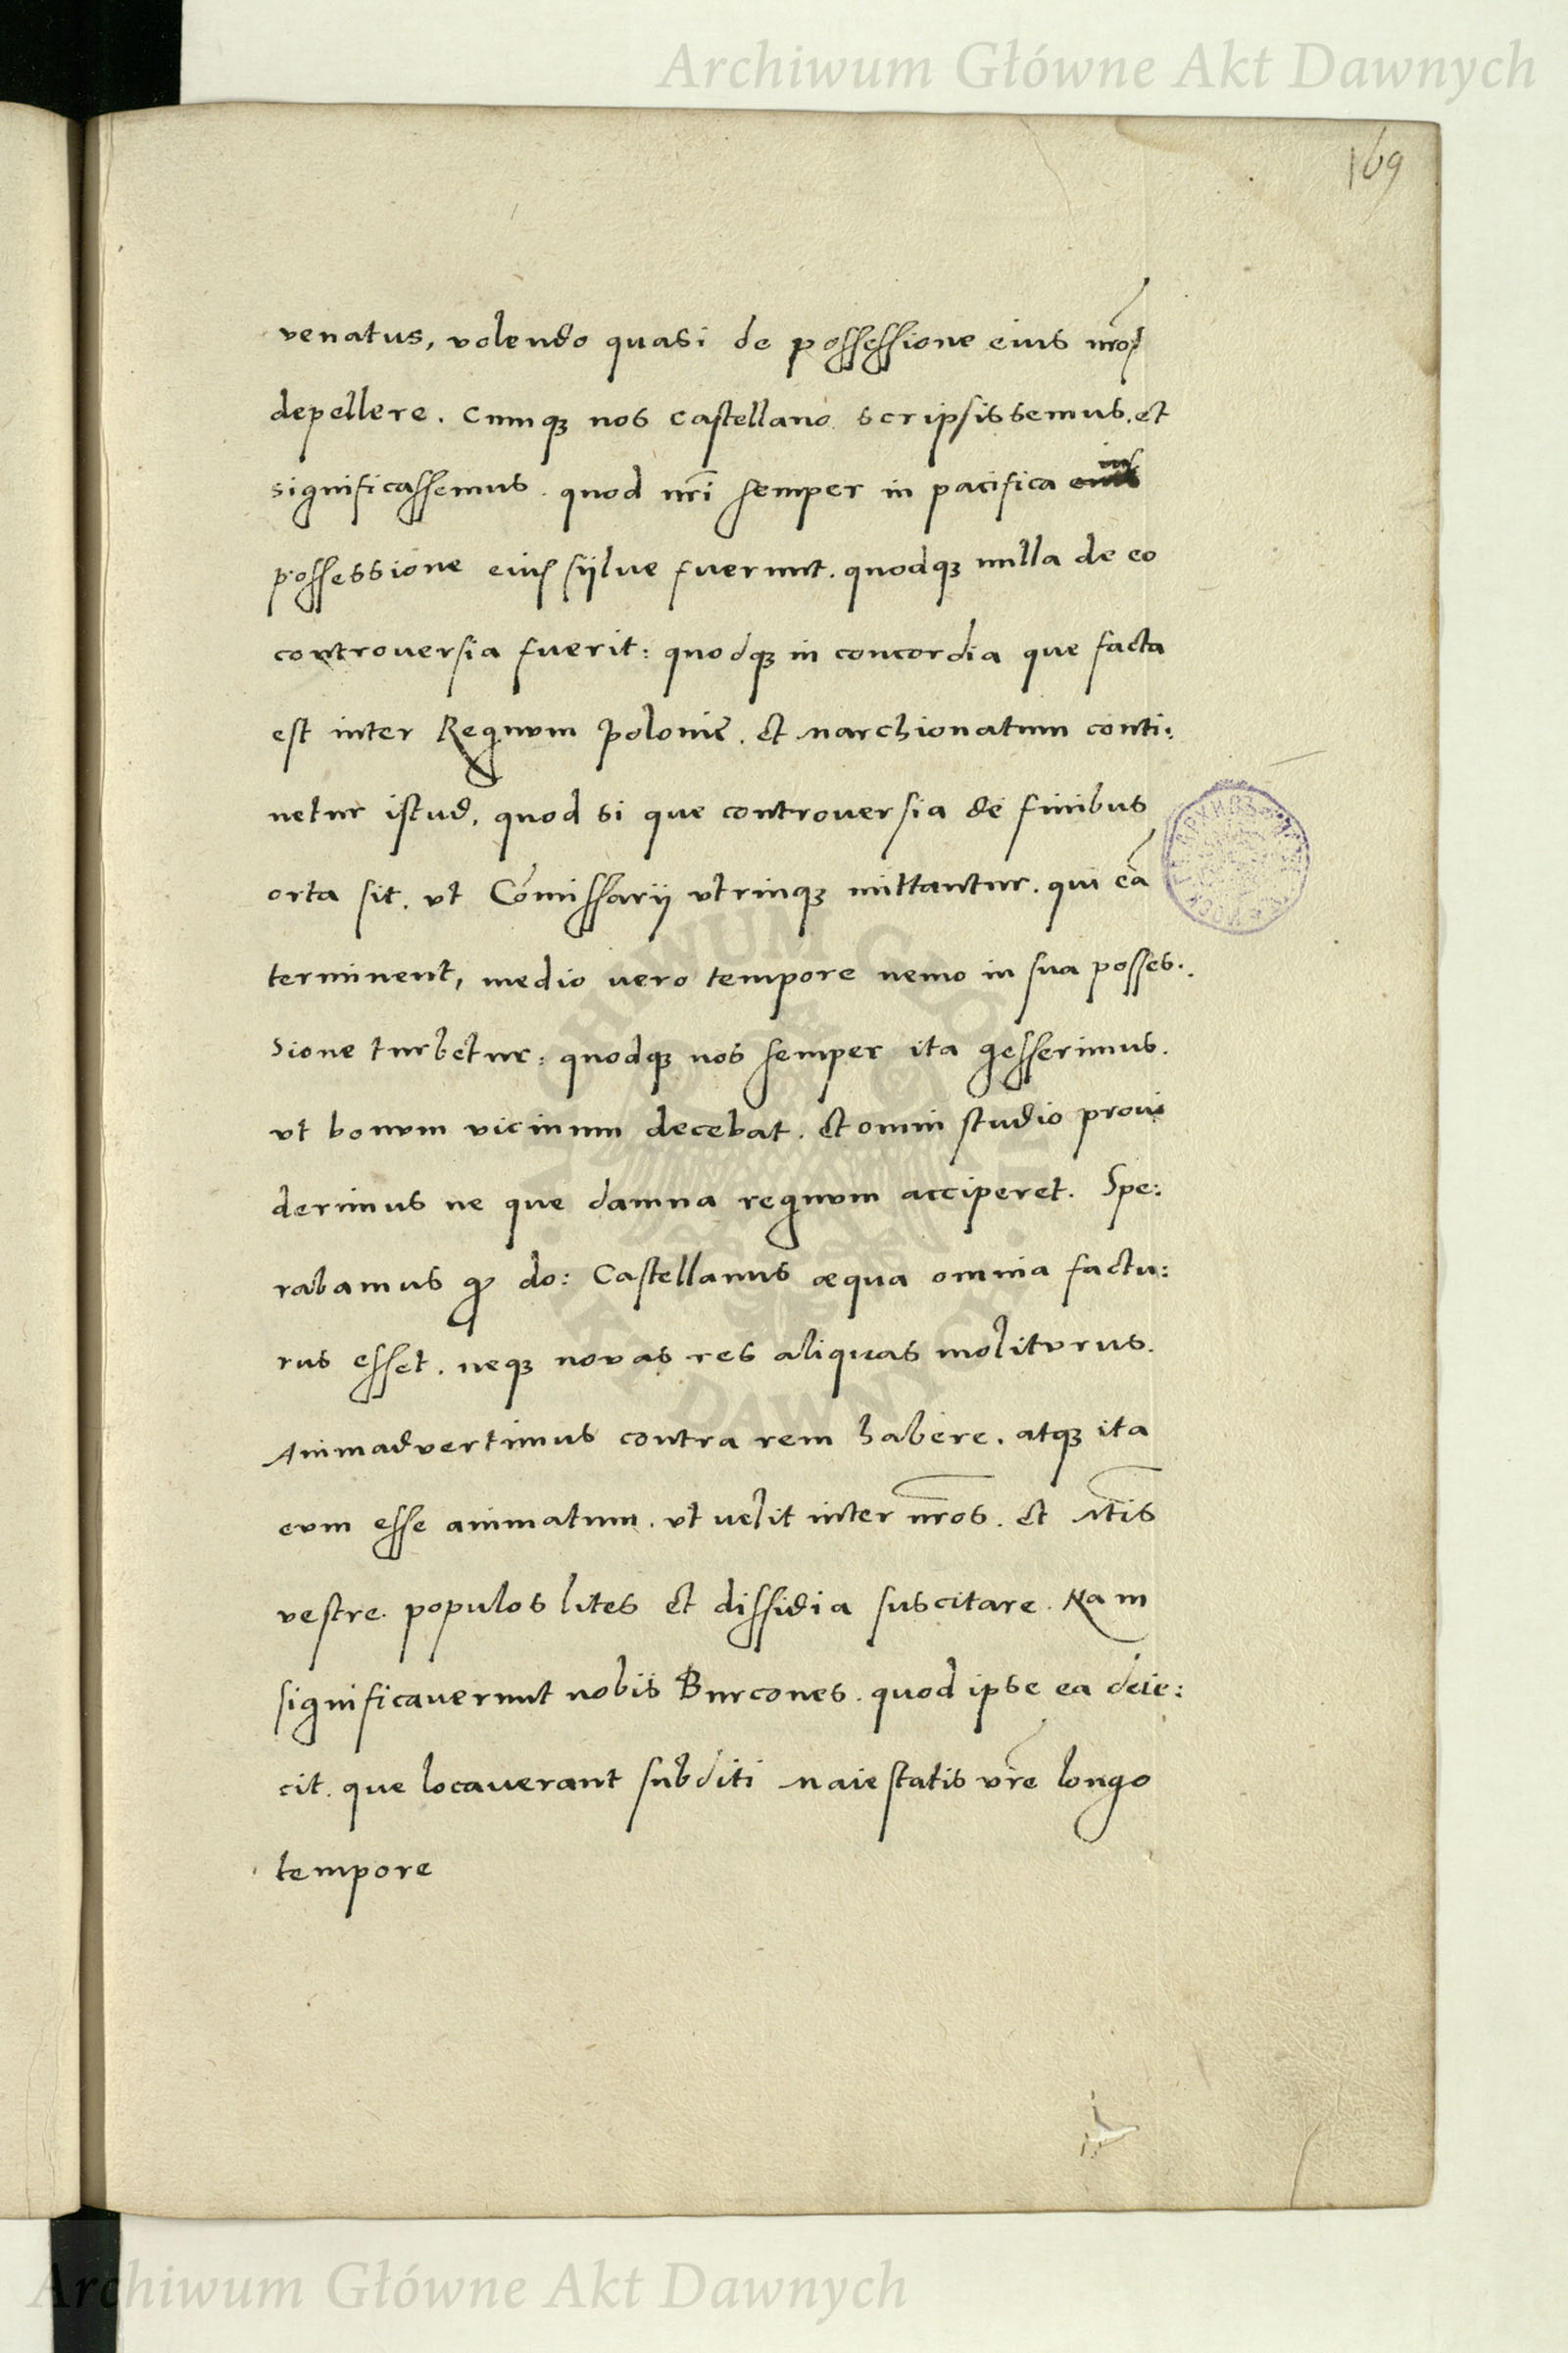 Archiwum Główne Akt Dawnych
169
venatus, volendo quasi de possessione eius nr̃os
depellere. Cumqꝫ nos castellano scripsissemus. et
significassemus. quod nr̃i semper in pacifica
possessione eius sijlue fuerunt. quodqꝫ nulla de eo
controuersia fuerit: quodqꝫ in concordia que facta
est inter Regnvm Polonie. et Marchionatum conti:
netur istud, quod si que controuersia de finibus
orta sit. vt Cõmissarij vtrinqꝫ mittantur. qui eã
terminent, medio vero tempore nemo in sua posses:
sione turbetur: quodqꝫ nos semper ita gesserimus.
vt bonvm vicinum decebat. et omni studio proui
derimus ne que damna regnvm acciperet. Spe:
rabamus ꝙ do: Castellanus æqua omnia factu:
rus esset. neqꝫ novas res aliquas molitvrus.
Animadvertimus contra rem habere. atqꝫ ita
evm esse animatum. vt uelit inter nr̃os. et Mt̃is
vestre. populos lites et dissidia suscitare. Nam
significauerunt nobis Burcones. quod ipse ea deie:
cit. que locauerant subditi Maiestatis vr̃e longo
tempore
ARCHIWUM GŁÓWNE AKT DAWNYCH
Archiwum Główne Akt Dawnych